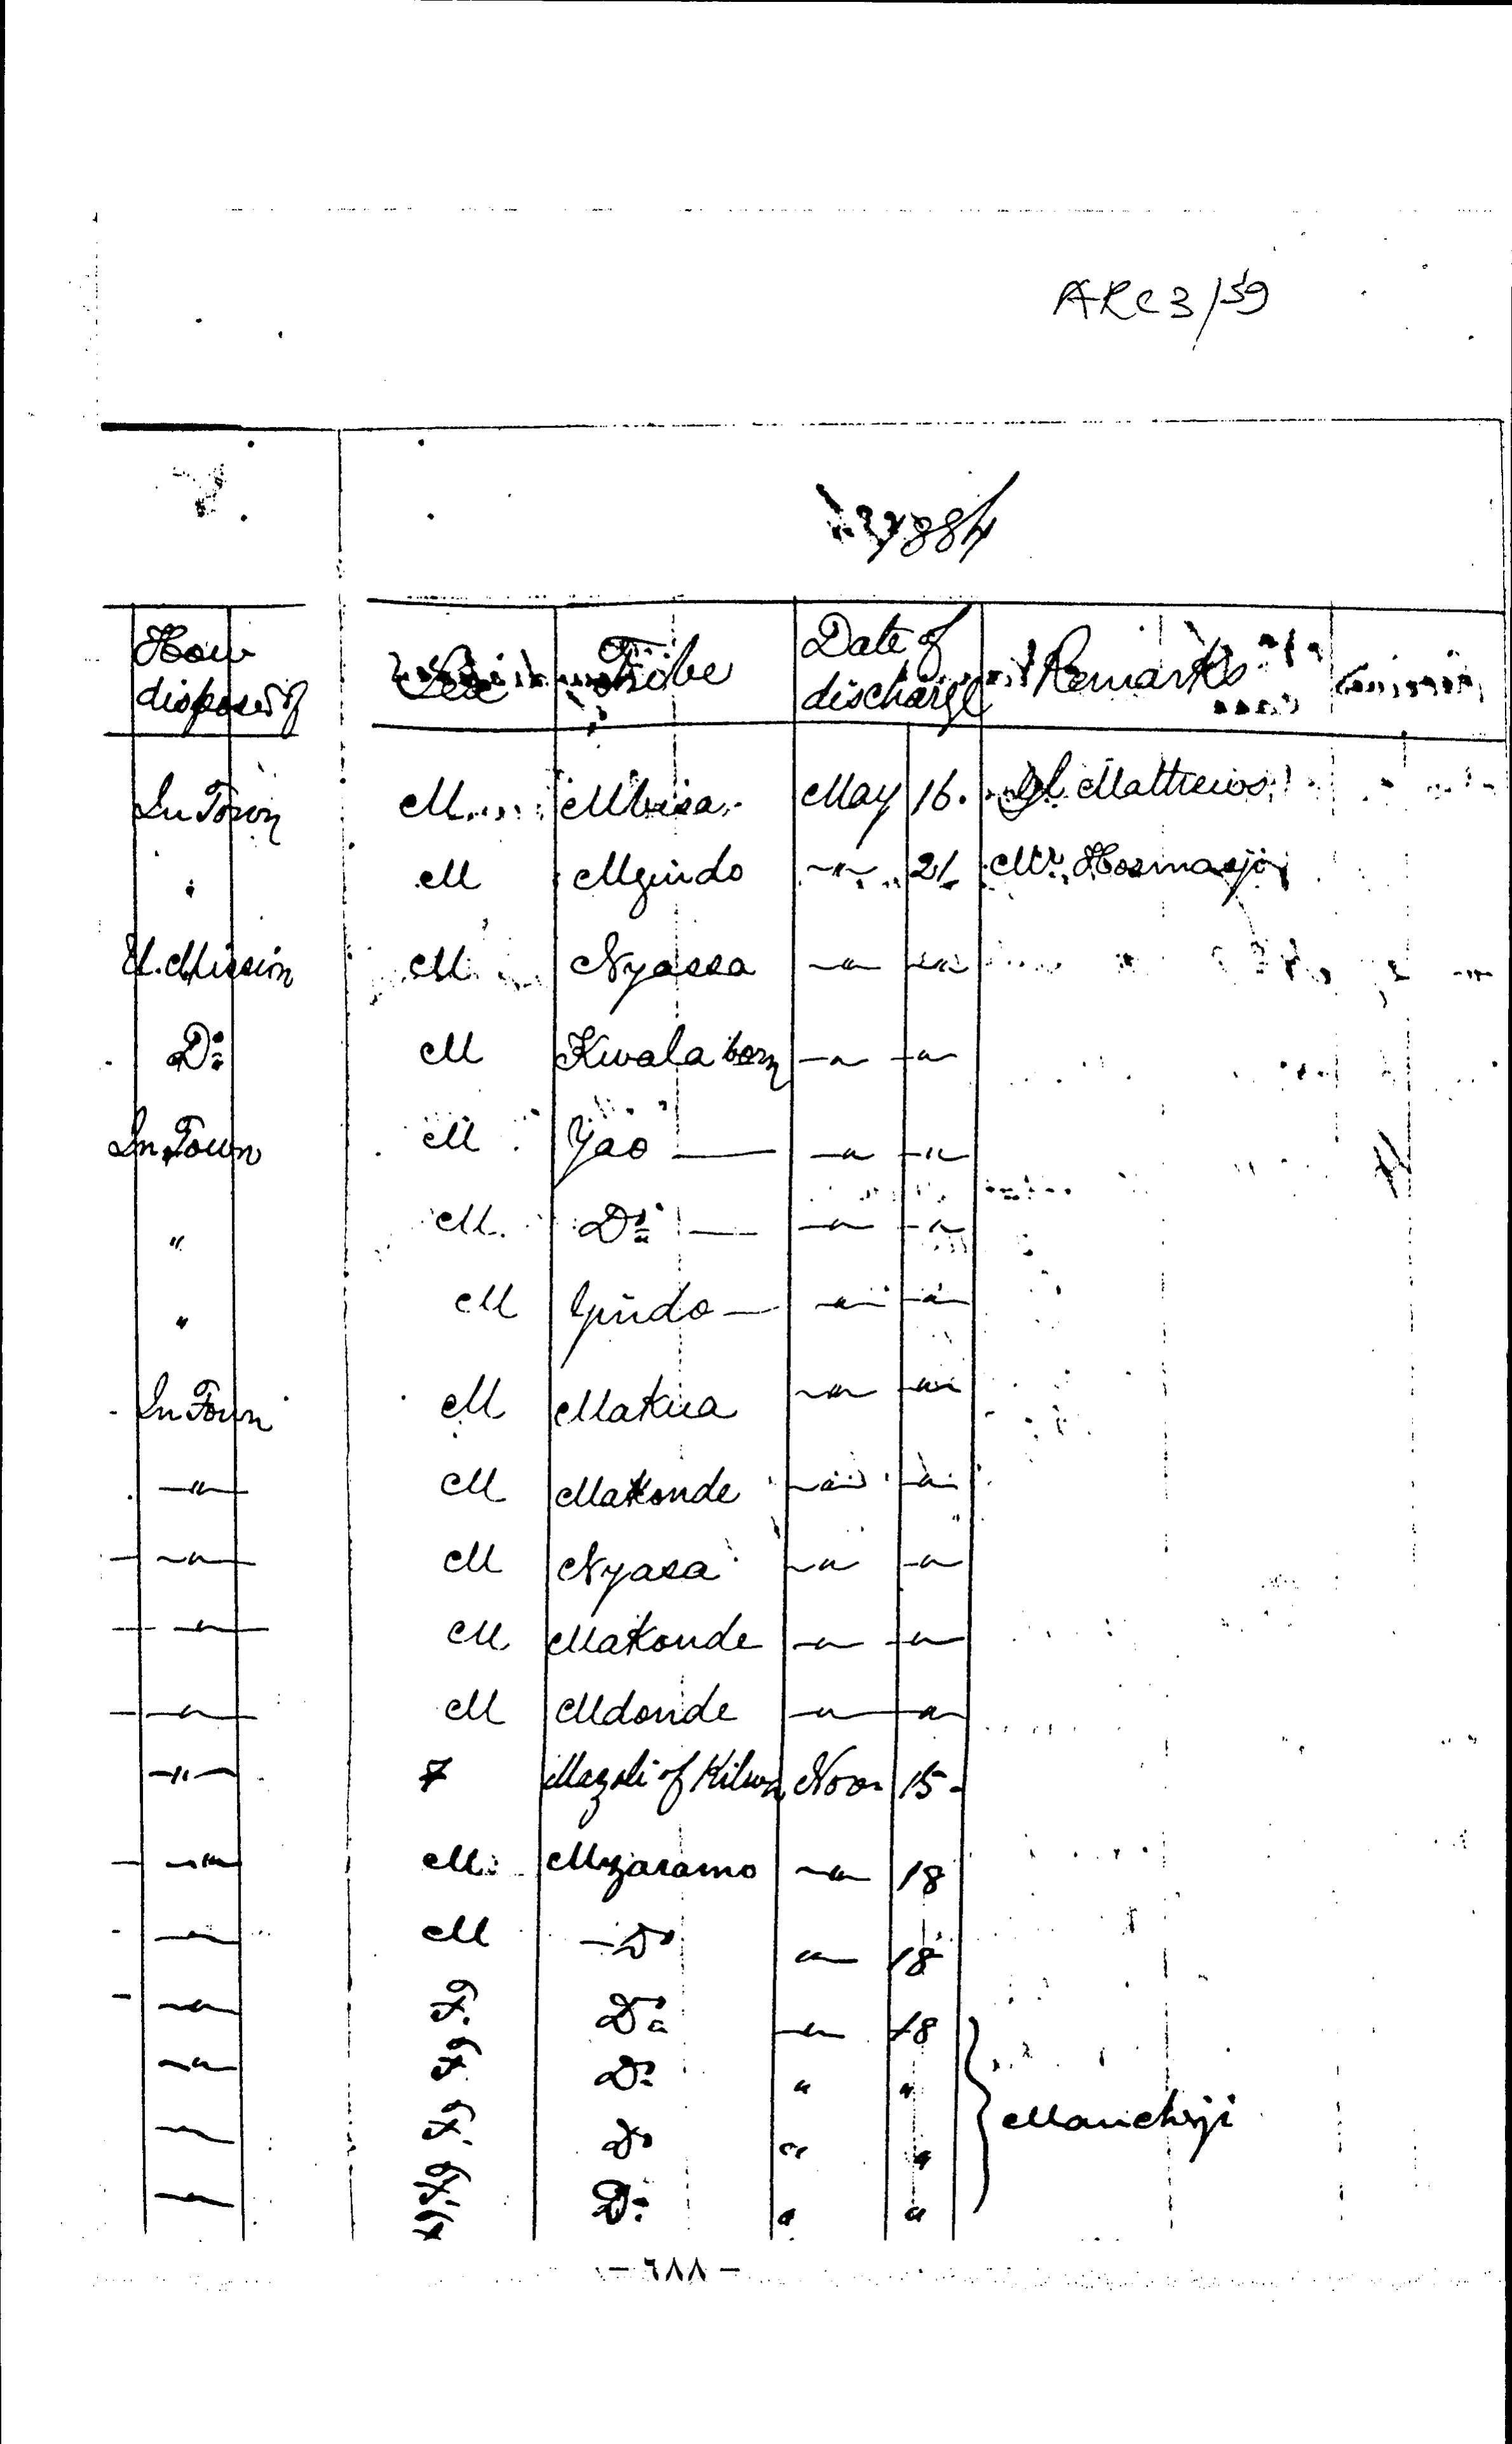 ARC 3/59
1884
How disposed of Sex Tribe Date of discharge Remarks
In Town M Mbisa May 16. Mathews
" M Mgindo -"- 21 Mr. Hormasji
U. Mission M Nyassa -"- -"-
Do M Kwala born -"- -"-
In Town M Yao — -"- -"-
" M. Do — -"- -"-
" M Gindo — -"- -"-
In Town M Makua -"- -"-
-"- M Makonde -"- -"-
-"- M Nyasa -"- -"-
-"- M Makonde -"- -"-
-"- M Mdonde -"- -"-
-"- F of Kilwa Nov. 15.
-"- M. Mzaramo -"- 18
-"- M -Do -"- 18
-"- F. Do -"- 18
-"- F. Do " "
-"- F. Do " " Mancherji
-"- F. Do " "
- ٦٨٨ -